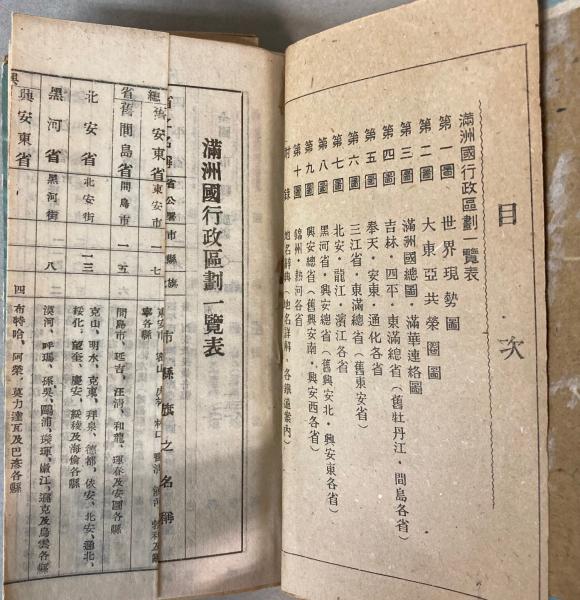 目次
滿洲國行政區劃一覽表
第一圖 世界現勢圖
第二圖 大東亞共榮圈圖
第三圖 滿洲國總圖・滿華連絡圖
第四圖 吉林・四平・東滿總省(舊牡丹江・間島各省)
第五圖 奉天・安東・通化各省
第六圖 三江省・東滿總省(舊東安省)
第七圖 北安・龍江・濱江各省
第八圖 黑河省・興安總省(舊興安北・興安東各省)
第九圖 興安總省(舊興安南・興安西各省)
第十圖 錦州・熱河各省
附錄 地名辭典(地名詳解・各鐵道案內)
滿洲國行政區劃一覽表
省公署
市縣旗
市縣旗之名稱
舊安東省 東安市 七
寧各縣
舊間島省 間島市 一五 間島市、延吉、汪清、和龍、琿春及安圖各縣
北安省 北安街 一三 克山、明水、克東、拜泉、德都、依安、北安、通北、
綏化、望奎、慶安、綏稜及海倫各縣
黑河省 黑河街 八 漠河、呼瑪、孫吳、鷗浦、璦琿、嫩江、遜克及烏雲各縣
興安東省 四 布特哈、阿榮、莫力達瓦及巴彥各縣